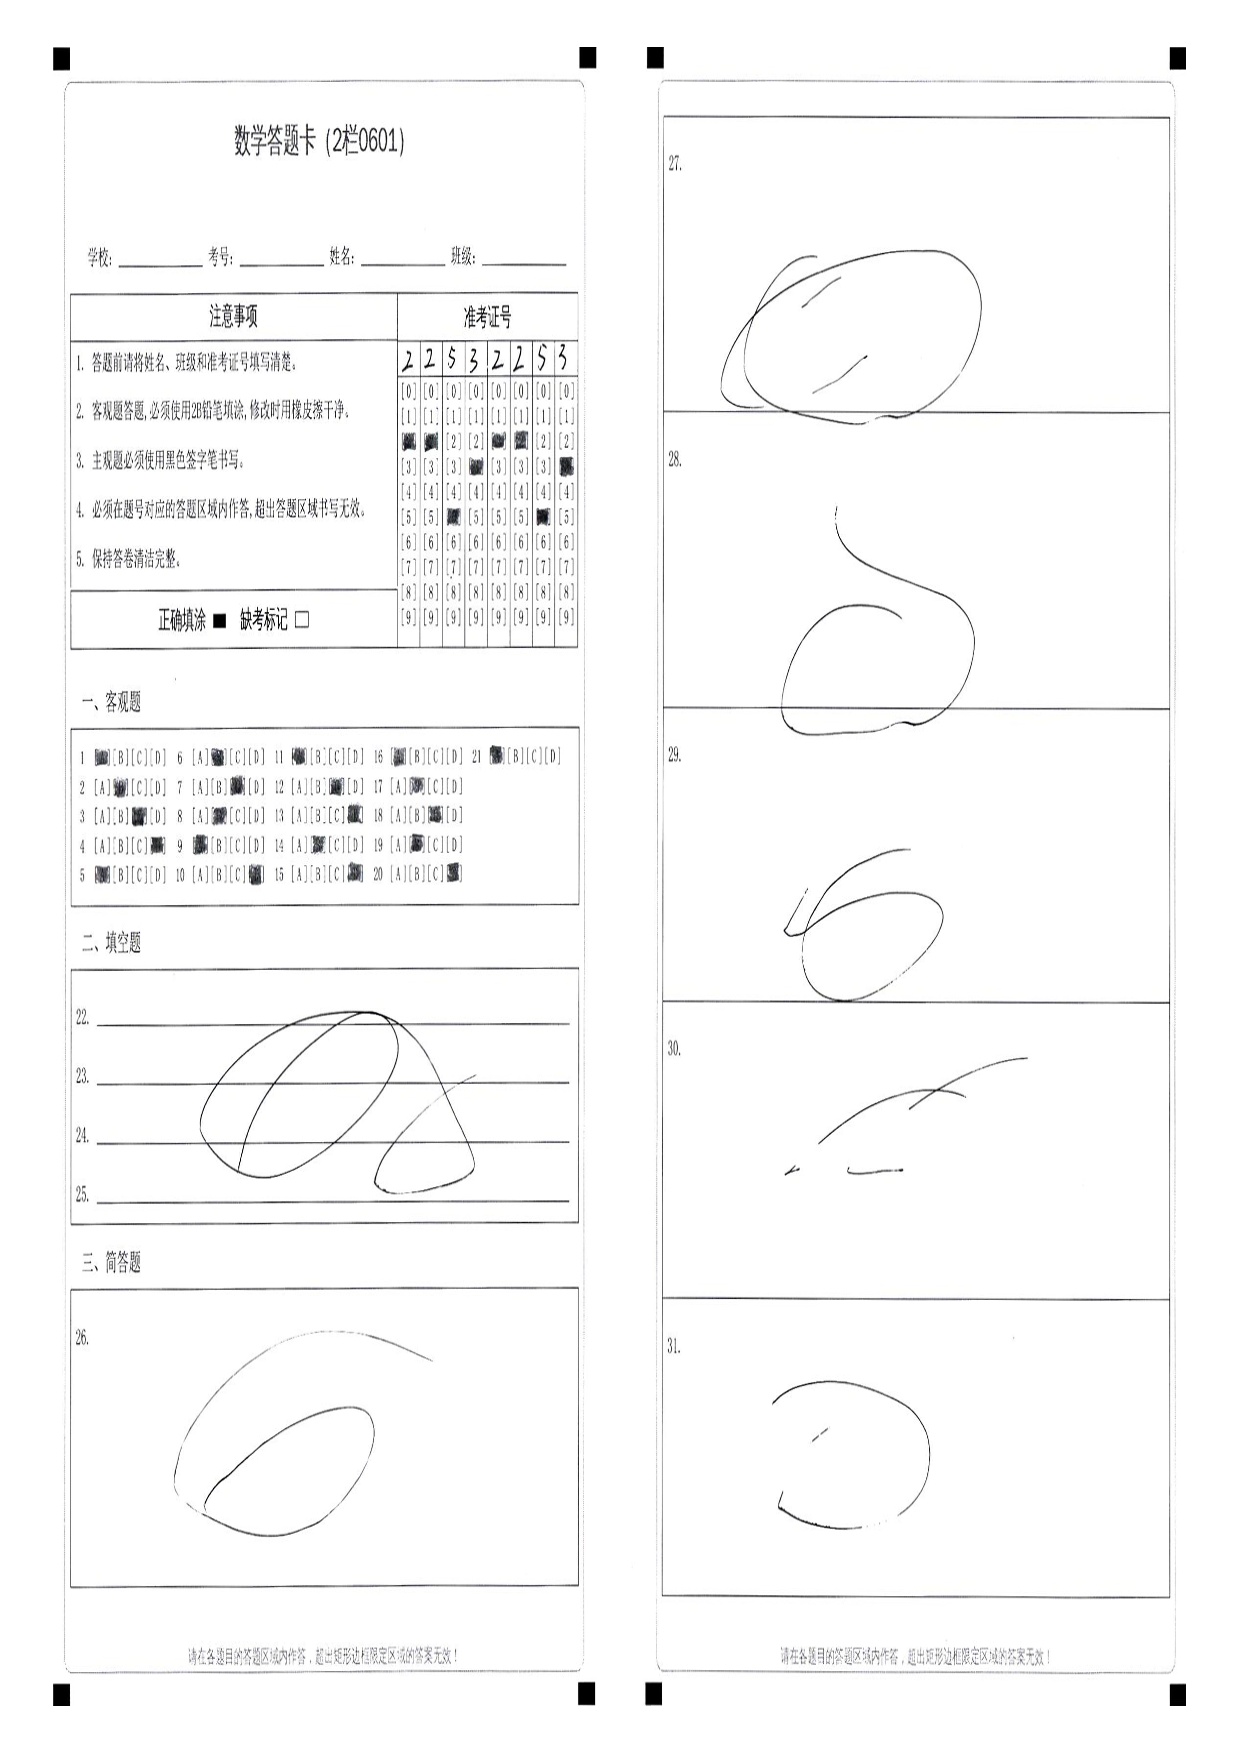 数学答题卡（2栏0601）
学校: 考号: 姓名: 班级:
注意事项
1. 答题前请将姓名、班级和准考证号填写清楚。
2. 客观题答题,必须使用2B铅笔填涂,修改时用橡皮擦干净。
3. 主观题必须使用黑色签字笔书写。
4. 必须在题号对应的答题区域内作答,超出答题区域书写无效。
5. 保持答卷清洁完整。
正确填涂 缺考标记
准考证号
2 2 5 3 2 2 5 3
[0] [0] [0] [0] [0] [0] [0] [0]
[1] [1] [1] [1] [1] [1] [1] [1]
[2] [2] [2] [2]
[3] [3] [3] [3] [3] [3]
[4] [4] [4] [4] [4] [4] [4] [4]
[5] [5] [5] [5] [5] [5]
[6] [6] [6] [6] [6] [6] [6] [6]
[7] [7] [7] [7] [7] [7] [7] [7]
[8] [8] [8] [8] [8] [8] [8] [8]
[9] [9] [9] [9] [9] [9] [9] [9]
一、客观题
1 [B][C][D] 6 [A] [C][D] 11 [B][C][D] 16 [B][C][D] 21 [B][C][D]
2 [A] [C][D] 7 [A][B] [D] 12 [A][B] [D] 17 [A] [C][D]
3 [A][B] [D] 8 [A] [C][D] 13 [A][B][C] 18 [A][B] [D]
4 [A][B][C] 9 [B][C][D] 14 [A] [C][D] 19 [A] [C][D]
5 [B][C][D] 10 [A][B][C] 15 [A][B][C] 20 [A][B][C]
二、填空题
22.
23.
24.
25.
三、简答题
26.
请在各题目的答题区域内作答，超出矩形边框限定区域的答案无效！
27.
28.
29.
30.
31.
请在各题目的答题区域内作答，超出矩形边框限定区域的答案无效！